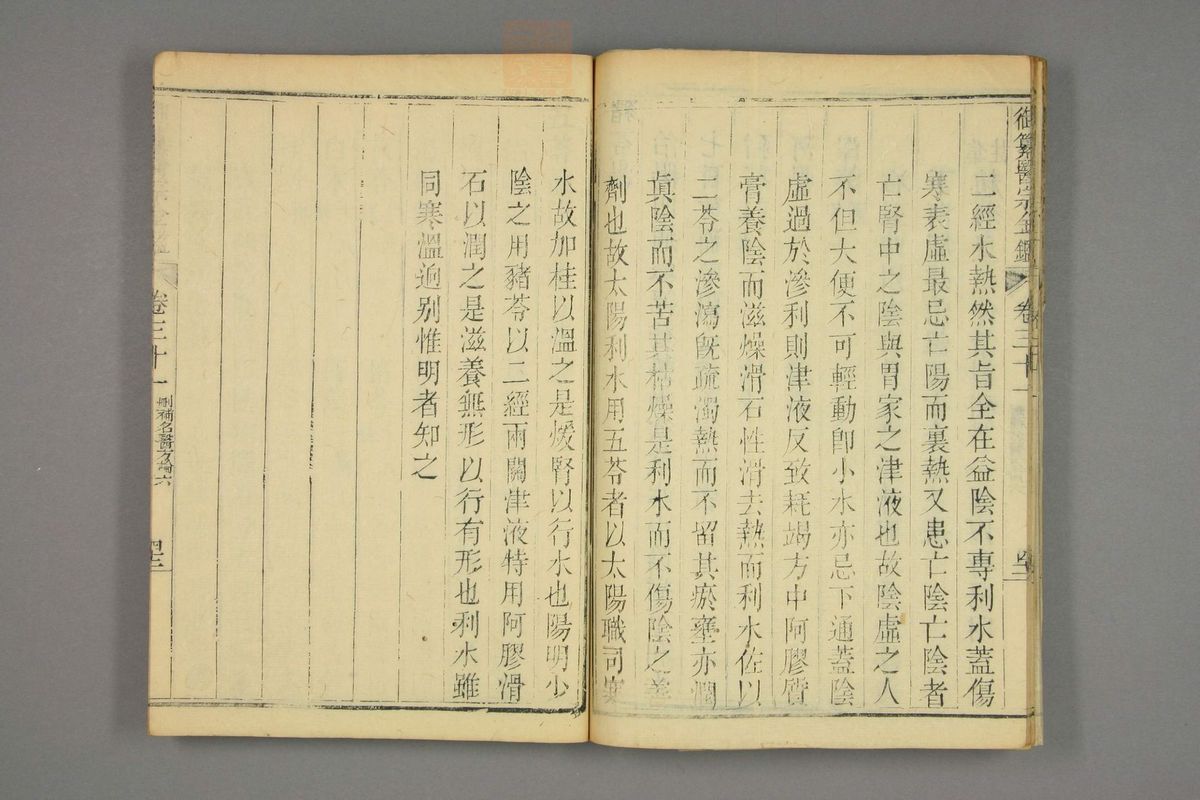 御纂醫宗金鑑
卷三十一
二經水熱然其旨全在益陰不專利水蓋傷
寒表虛最忌亡陽而裏熱又患亡陰亡陰者
亡腎中之陰與胃家之津液也故陰虛之人
不但大便不可輕動卽小水亦忌下通蓋陰
虛過於滲利則津液反致耗竭方中阿膠質
膏養陰而滋燥滑石性滑去熱而利水佐以
二苓之滲瀉旣疏濁熱而不留其瘀壅亦潤
眞陰而不苦其枯燥是利水而不傷陰之善
劑也故太陽利水用五苓者以太陽職司寒
水故加桂以溫之是煖腎以行水也陽明少
陰之用豬苓以二經兩關津液特用阿膠滑
石以潤之是滋養無形以行有形也利水雖
同寒溫逈别惟明者知之
卷三十一 刪補名醫方論六